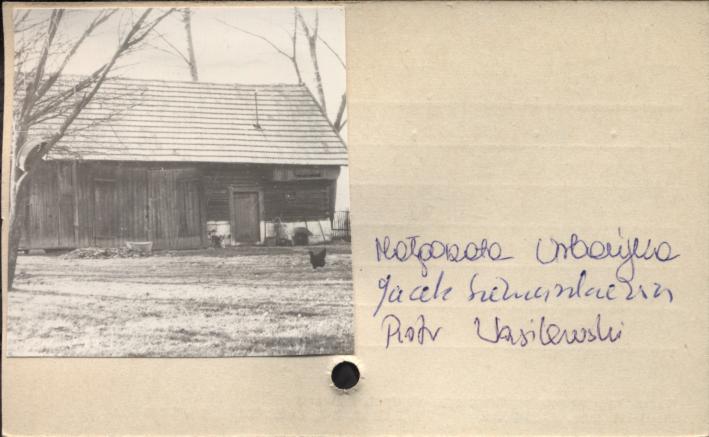 Małgorzata Urbańska
Jacek
Piotr Wasilewski